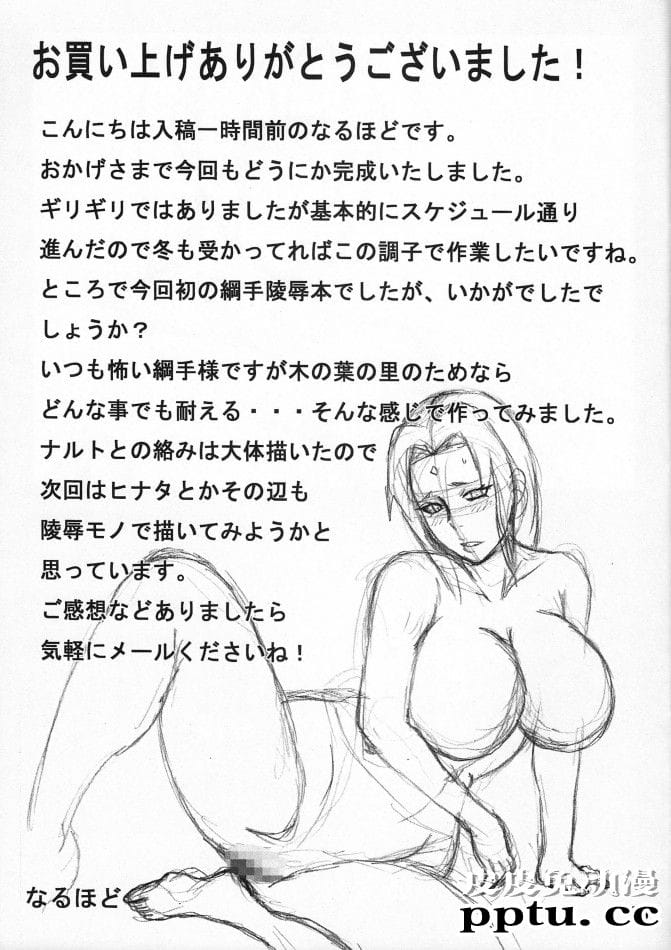 お買い上げありがとうございました！
こんにちは入稿一時間前のなるほどです。
おかげさまで今回もどうにか完成いたしました。
ギリギリではありましたが基本的にスケジュール通り
進んだので冬も受かってればこの調子で作業したいですね。
ところで今回初の綱手陵辱本でしたが、いかがでしたで
しょうか？
いつも怖い綱手様ですが木の葉の里のためなら
どんな事でも耐える・・・そんな感じで作ってみました。
ナルトとの絡みは大体描いたので
次回はヒナタとかその辺も
陵辱モノで描いてみようかと
思っています。
ご感想などありましたら
気軽にメールくださいね！
なるほど
皮皮兔动漫
pptu.cc